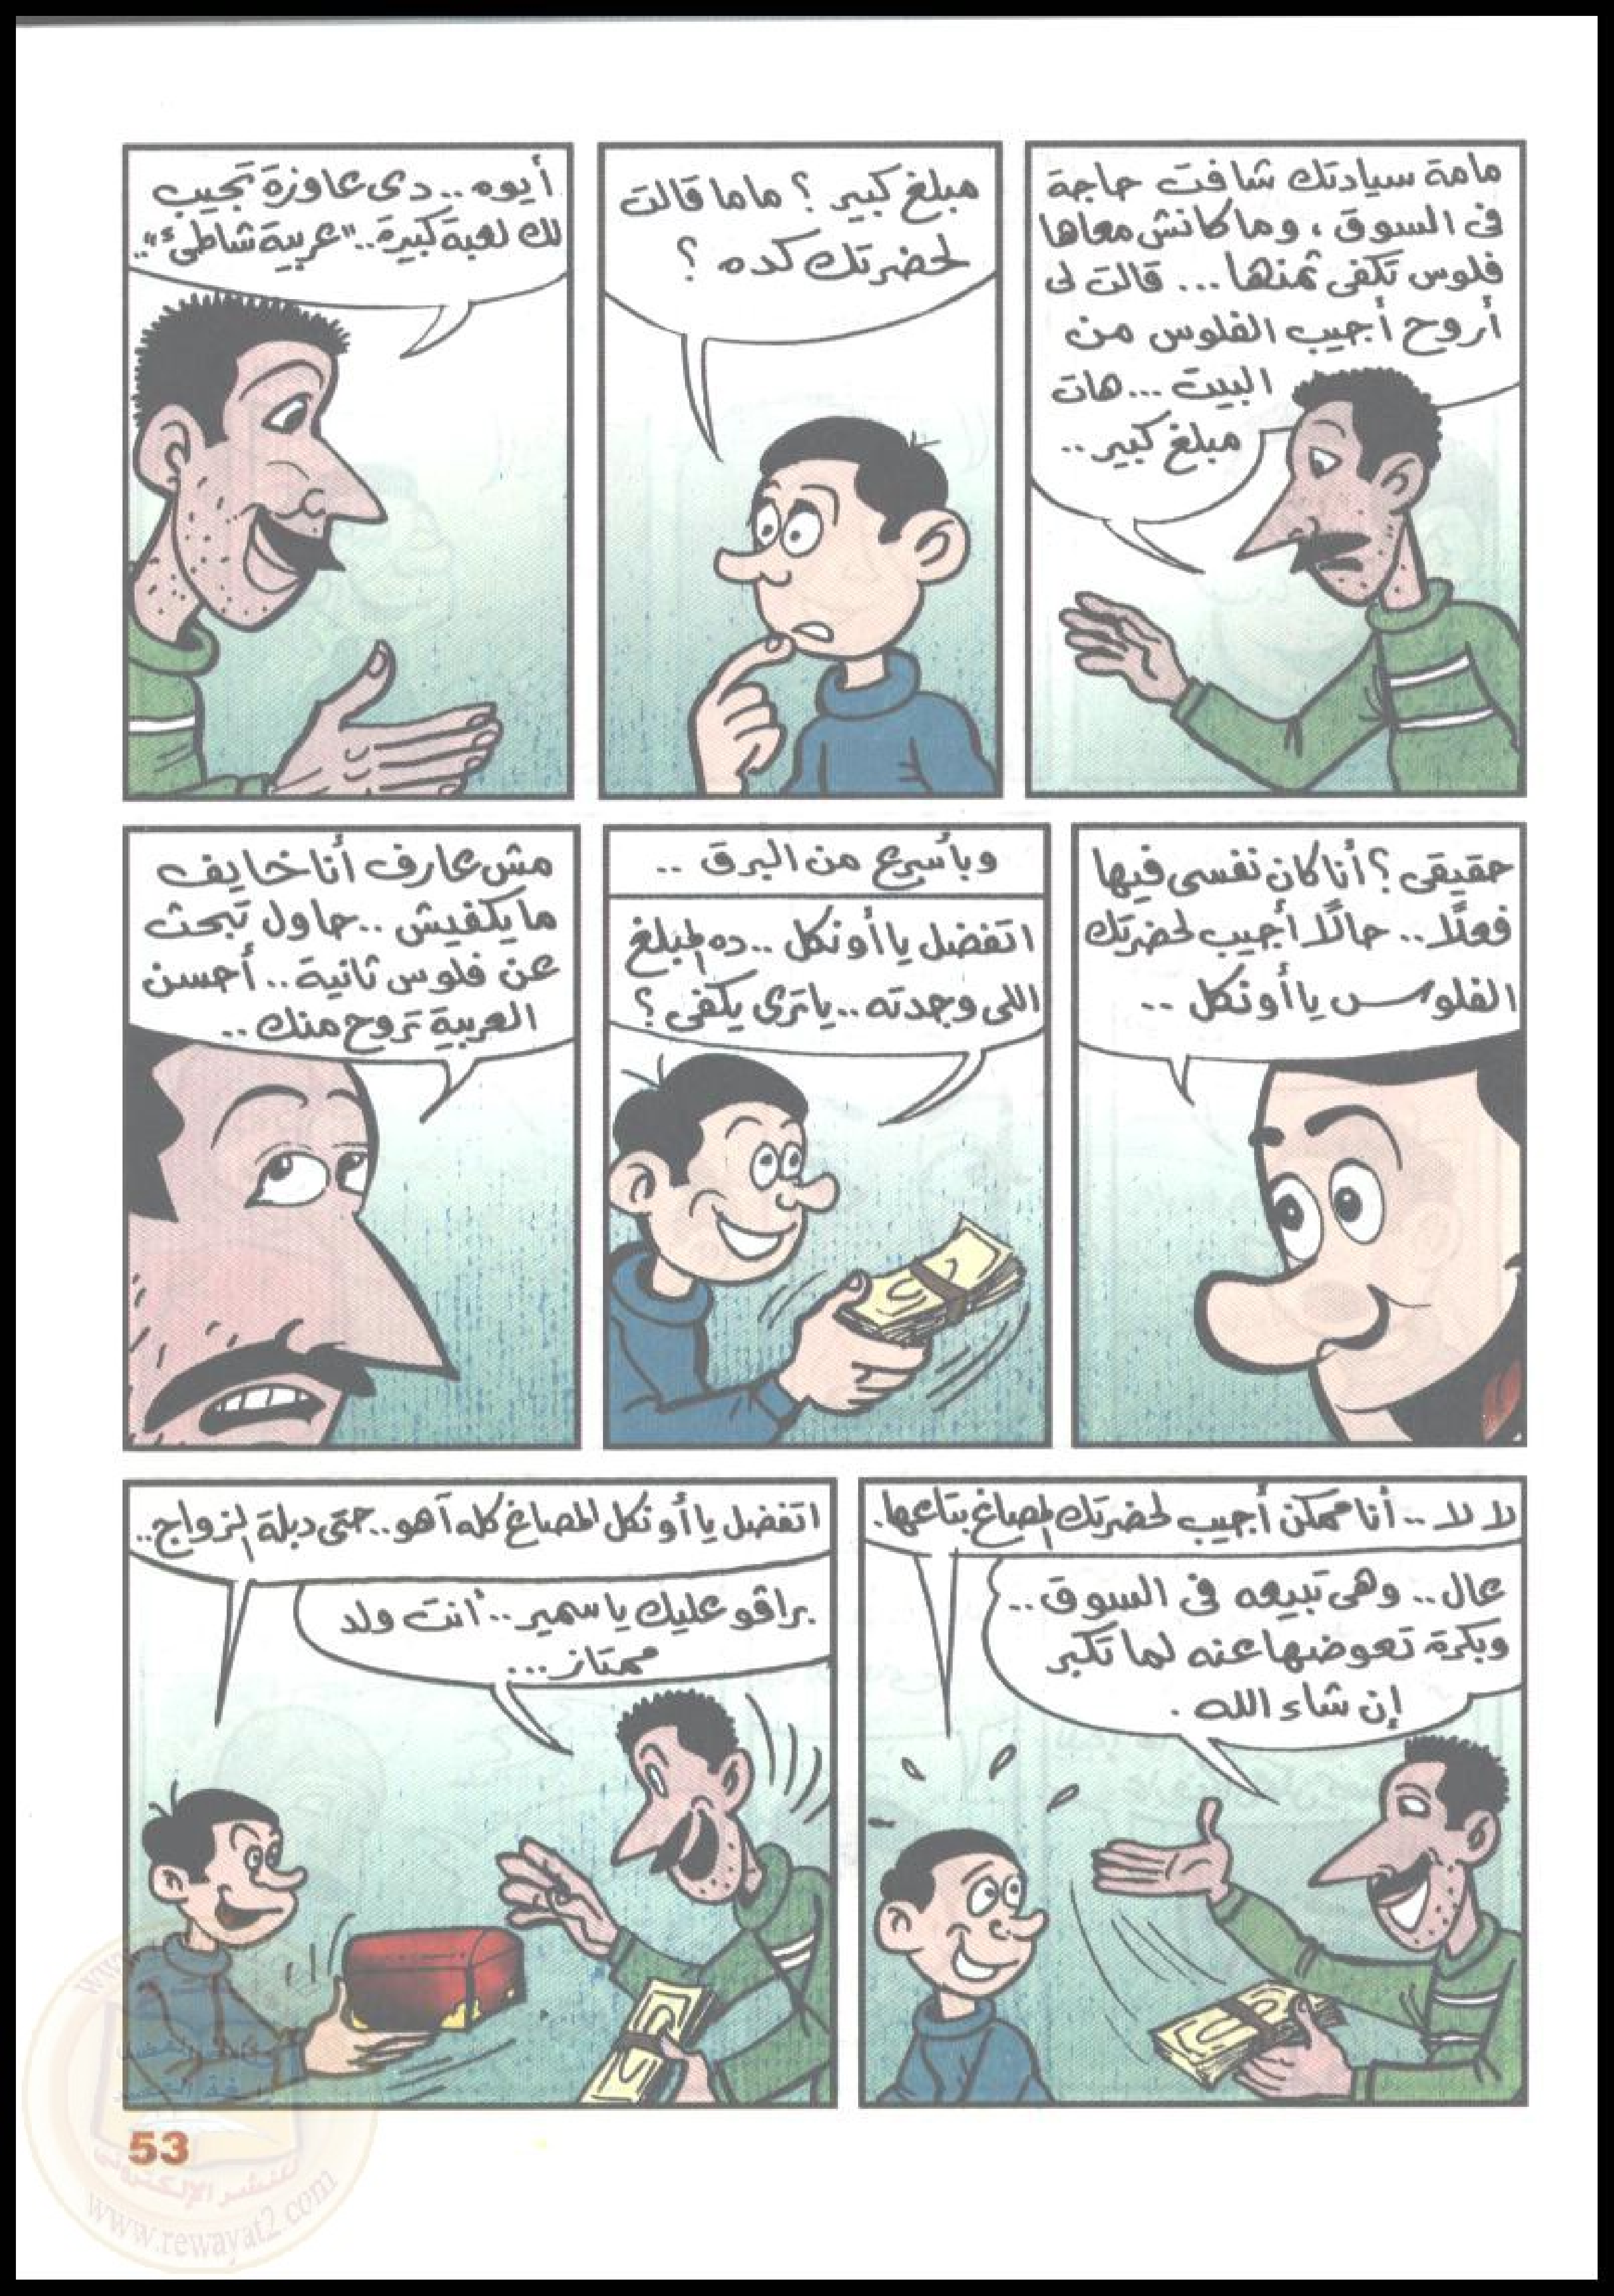 مامة سيادتك شافت حاجة
فى السوق ، وما كانش معاها
فلوس تكفى ثمنها... قالت لى
أروح أجيب الفلوس من
البيت ...هات
مبلغ كبير ..
مبلغ كبير ؟ ماما قالت
لحضرتك كده ؟
أيوه .. دى عاوزة تجيب
لك لعبة كبيرة.. "عربية شاطئ"..
حقيقى ؟ أنا كان نفسى فيها
فعلًا .. حالًا أجيب لحضرتك
الفلوس يا أونكل ..
وبأسرع من البرق ..
اتفضل يا أونكل .. ده المبلغ
اللى وجدته .. ياترى يكفى ؟
مش عارف أنا خايف
ما يكفيش .. حاول تبحث
عن فلوس ثانية .. أحسن
العربية تروح منك ..
لا لا .. أنا ممكن أجيب لحضرتك المصاغ بتاعها.
عال .. وهى تبيعه فى السوق ..
وبكرة تعوضها عنه لما تكبر
إن شاء الله .
اتفضل يا أونكل المصاغ كله آهو.. حتى دبلة الزواج..
براڤو عليك يا سمير .. أنت ولد
ممتاز...
53
للنشر الإلكترونى
www.rewayat2.com